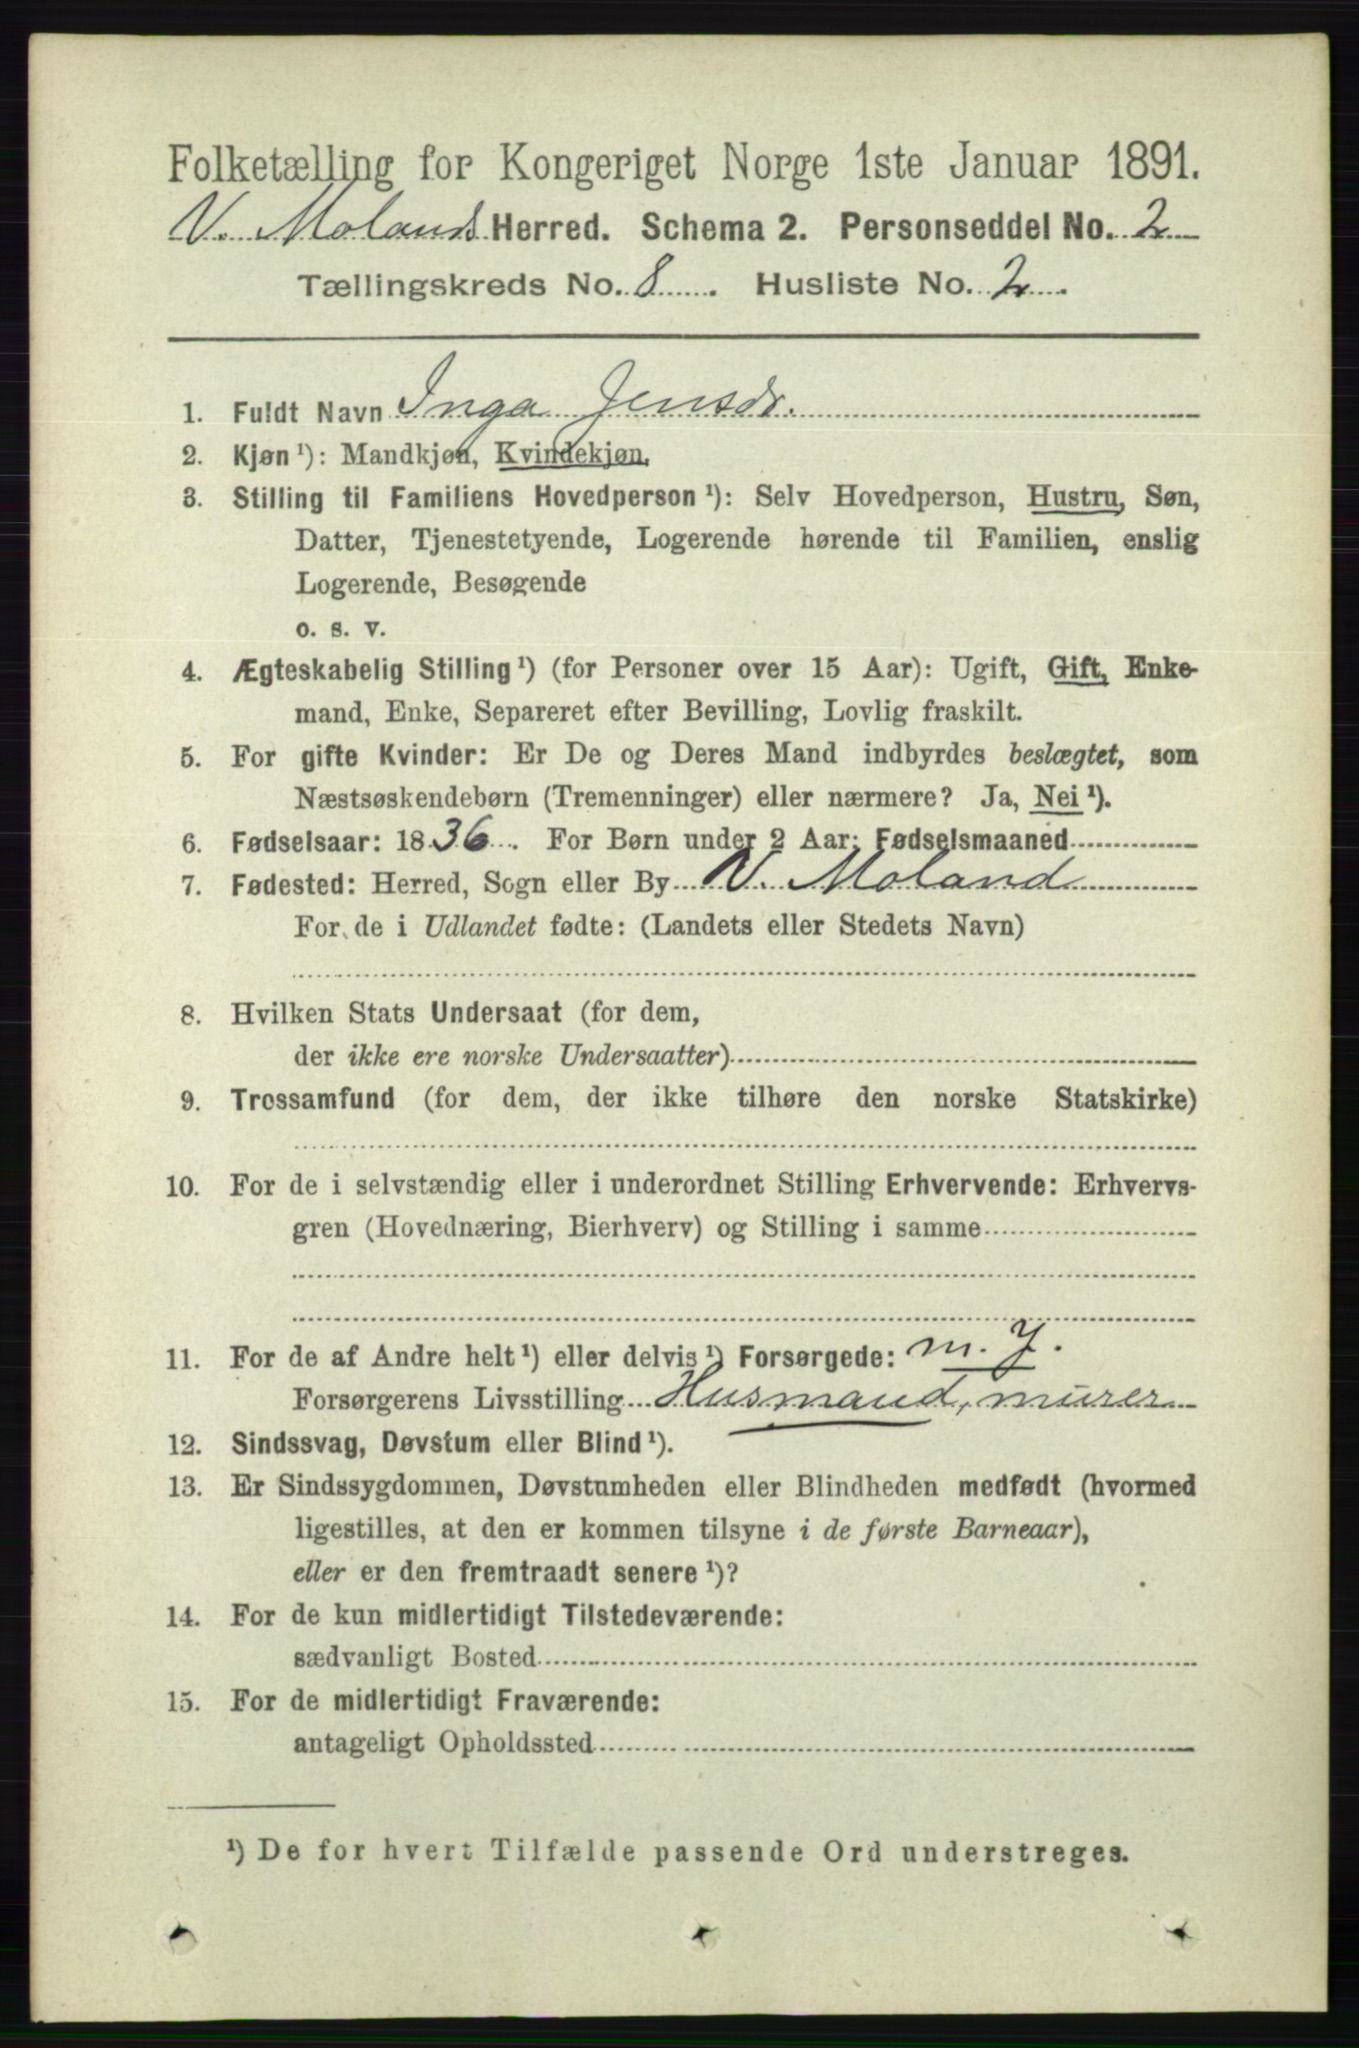 Folketælling for Kongeriget Norge 1ste Januar 1891.
V. Molands Herred. Schema 2. Personseddel No. 2
Tællingskreds No. 8. Husliste No. 2.
1. Fuldt Navn Inga Jensdr.
2. Kjøn ¹): Mandkjøn, Kvindekjøn.
3. Stilling til Familiens Hovedperson ¹): Selv Hovedperson, Hustru, Søn,
Datter, Tjenestetyende, Logerende hørende til Familien, enslig
Logerende, Besøgende
o. s. v.
4. Ægteskabelig Stilling ¹) (for Personer over 15 Aar): Ugift, Gift, Enke-
mand, Enke, Separeret efter Bevilling, Lovlig fraskilt.
5. For gifte Kvinder: Er De og Deres Mand indbyrdes beslægtet, som
Næstsøskendebørn (Tremenninger) eller nærmere? Ja, Nei ¹).
6. Fødselsaar: 1836. For Børn under 2 Aar: Fødselsmaaned
7. Fødested: Herred, Sogn eller By V. Moland
For de i Udlandet fødte: (Landets eller Stedets Navn)
8. Hvilken Stats Undersaat (for dem,
der ikke ere norske Undersaatter)
9. Trossamfund (for dem, der ikke tilhøre den norske Statskirke)
10. For de i selvstændig eller i underordnet Stilling Erhvervende: Erhvervs-
gren (Hovednæring, Bierhverv) og Stilling i samme
11. For de af Andre helt ¹) eller delvis ¹) Forsørgede: m. J.
Forsørgerens Livsstilling Husmand, murer
12. Sindssvag, Døvstum eller Blind ¹).
13. Er Sindssygdommen, Døvstumheden eller Blindheden medfødt (hvormed
ligestilles, at den er kommen tilsyne i de første Barneaar),
eller er den fremtraadt senere ¹)?
14. For de kun midlertidigt Tilstedeværende:
sædvanligt Bosted
15. For de midlertidigt Fraværende:
antageligt Opholdssted
¹) De for hvert Tilfælde passende Ord understreges.